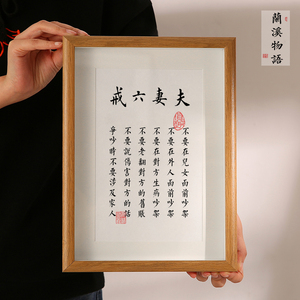 夫妻六戒
不要在兒女面前吵架
不要在外人面前吵架
不要在對方生病吵架
不要老翻對方的舊賬
不要說傷害對方的話
爭吵時不要涉及家人
蘭溪物語